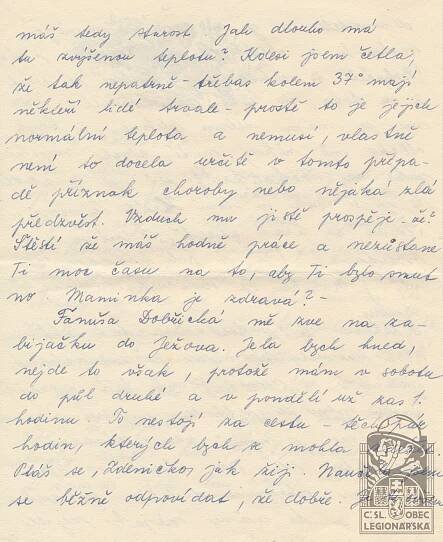 máš tedy starost Jak dlouho má
tu zvýšenou teplotu? Kdesi jsem četla,
že tak nepatrně - třebas kolem 37° mají
někteří lidé trvale - prostě to je jejich
normální teplota a nemusí, vlastně
není to docela určitě v tomto přípa-
dě příznak choroby nebo nějaká zlá
předzvěst. Vzduch mu jistě prospěje - že?
Štěstí že máš hodně práce a nezůstane
Ti moc času na to, aby Ti bylo smut
no. Maminka je zdravá? -
Fanuša Dobřická mě zve na za-
bijačku do Ježova. Jela bych hned,
nejde to však, protože mám v sobotu
do půl druhé a v pondělí už zas 1.
hodinu. To nestojí za cestu - těch pár
hodin, kterých bych se mohla
Ptáš se, Zdeničko, jak žiji. jsem
se běžně odpovídat, že dobře.
ČSL. OBEC
LEGIONÁŘSKÁ